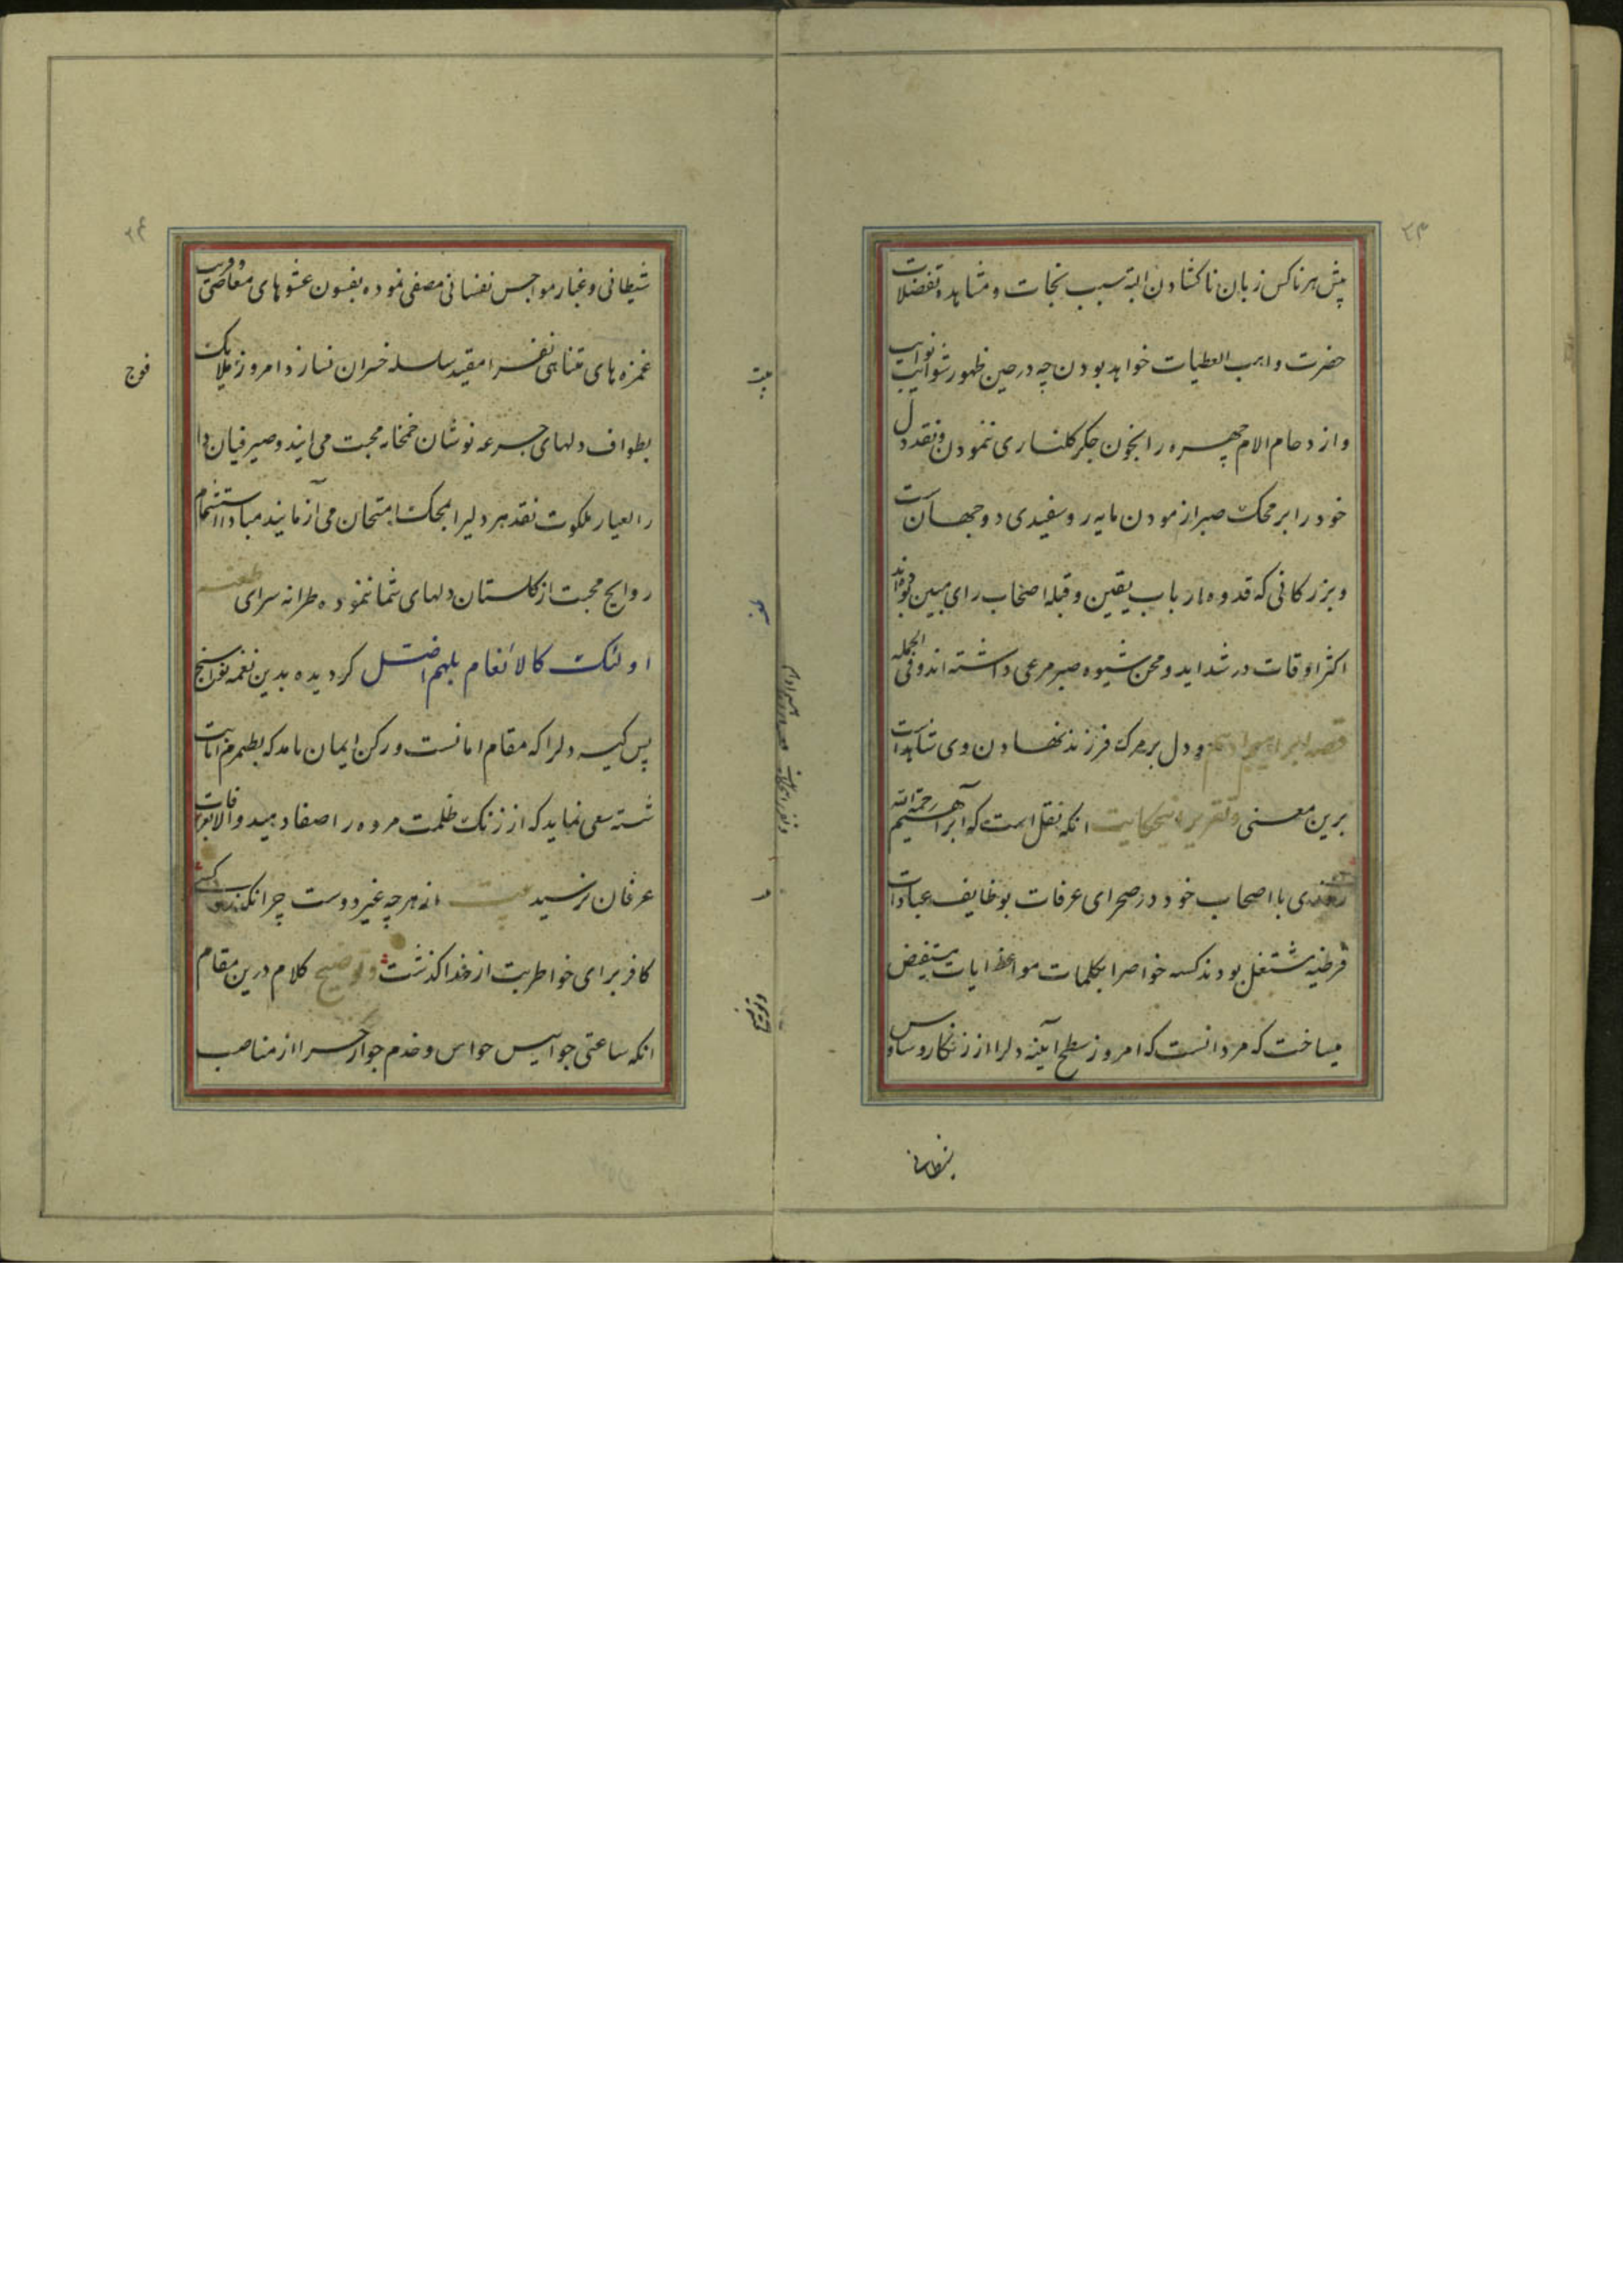 ۲۳
پیش هر ناکس زبان ناکشادن البته سبب نجات و مشاهده تفضلات
حضرت واهب العطیات خواهد بودن چه در حین ظهور نوایب
و ازدحام الام چهره را بخون جکر کلناری ننمودن و نقد دل
خود را بر محک صبر ازمودن مایه روسفیدی دوجهانست
و بزرکانی که قدوه ارباب یقین و قبله اصحاب رای مبین بوده‌اند
اکثر اوقات در شداید و محن شیوه صبر مرعی داشته اند و فی الجمله
قصه ابراهیم ادهم و دل بر مرک فرزند نهادن وی شاهد است
برین معنی و تقریر این حکایت انکه نقل است که ابراهیم رحمة الله
روزی با اصحاب خود در صحرای عرفات بوظایف عبادات
فرضیه مشتغل بودند کسه خواصرا بکلمات مواعظ ایات مستفیض
میساخت که مرد انست که امروز سطح آینه دلرا از زنکار وساوس
شیطانی
۲۴
شیطانی و غبار هواجس نفسانی مصفی نموده بفسون عشوهای معاصی و فریب
غمزه های متناهی نفس را مقید سلسله خسران نسازد امروز ملایک
فوج
بطواف دلهای جرعه نوشان خمخانه محبت می ایند و صیرفیان دار
العیار ملکوت نقد هر دلیرا بمحک امتحان می آزمایند مبادا استشمام
روایح محبت از کلستان دلهای شما ننموده طرانه سرای طعنه
اولئک کالانعام بلهم اضل کردیده بدین نغمه نواسنج
پس کیسه دلرا که مقام امانست و رکن ایمان بامد که بطمزم انابت
شسته سعی نماید که از زنک ظلمت مروه را صفا دهید و الا بعرفات
عرفان نرسید بیت از هرچه غیر دوست چرا نکذرد کسی
کافر برای خاطر بت از خدا کذشت و توضیح کلام درین مقام
انکه ساعتی جواسیس حواس و خدم جوارح را از مناصب